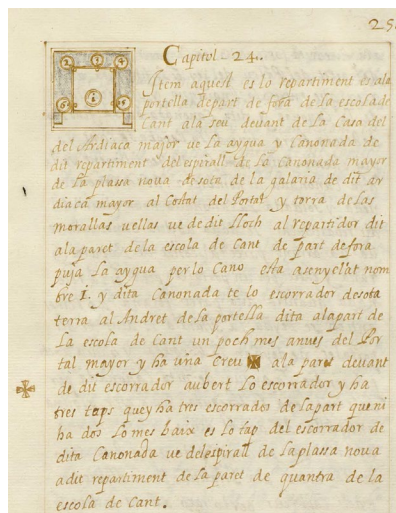 25
2 3 4
6 1 5
Capitol 24.
Item aquest es lo repartiment es ala
portella depart de fora de la escola de
Cant ala seu devant de la Casa del
del Ardiaca major ve La aygua y Canonada de
dit repartiment del espirall de La Canonada mayor
de La plassa nova desota de la galaria de dit ar
diaca mayor al Costat del Portal y torra de Las
morallas vellas ve de dit lloch al repartidor dit
ala paret de la escola de Cant de part de fora
puja La aygua per lo Cano esta asenyelat nom
bre 1. y dita Canonada te lo escorrador desota
terra al Andret de la portella dita ala part de
La escola de Cant un poch mes anves del Por
tal mayor y ha una Creu ✠ ala paret devant
de dit escorrador aubert Lo escorrador y ha
tres taps quey ha tres escorrados de la part que ni
ha dos Lo mes baix es lo tap del escorrador de
dita Canonada ve del espirall de la plassa nova
a dit repartiment de la paret de quantra de la
escola de Cant.